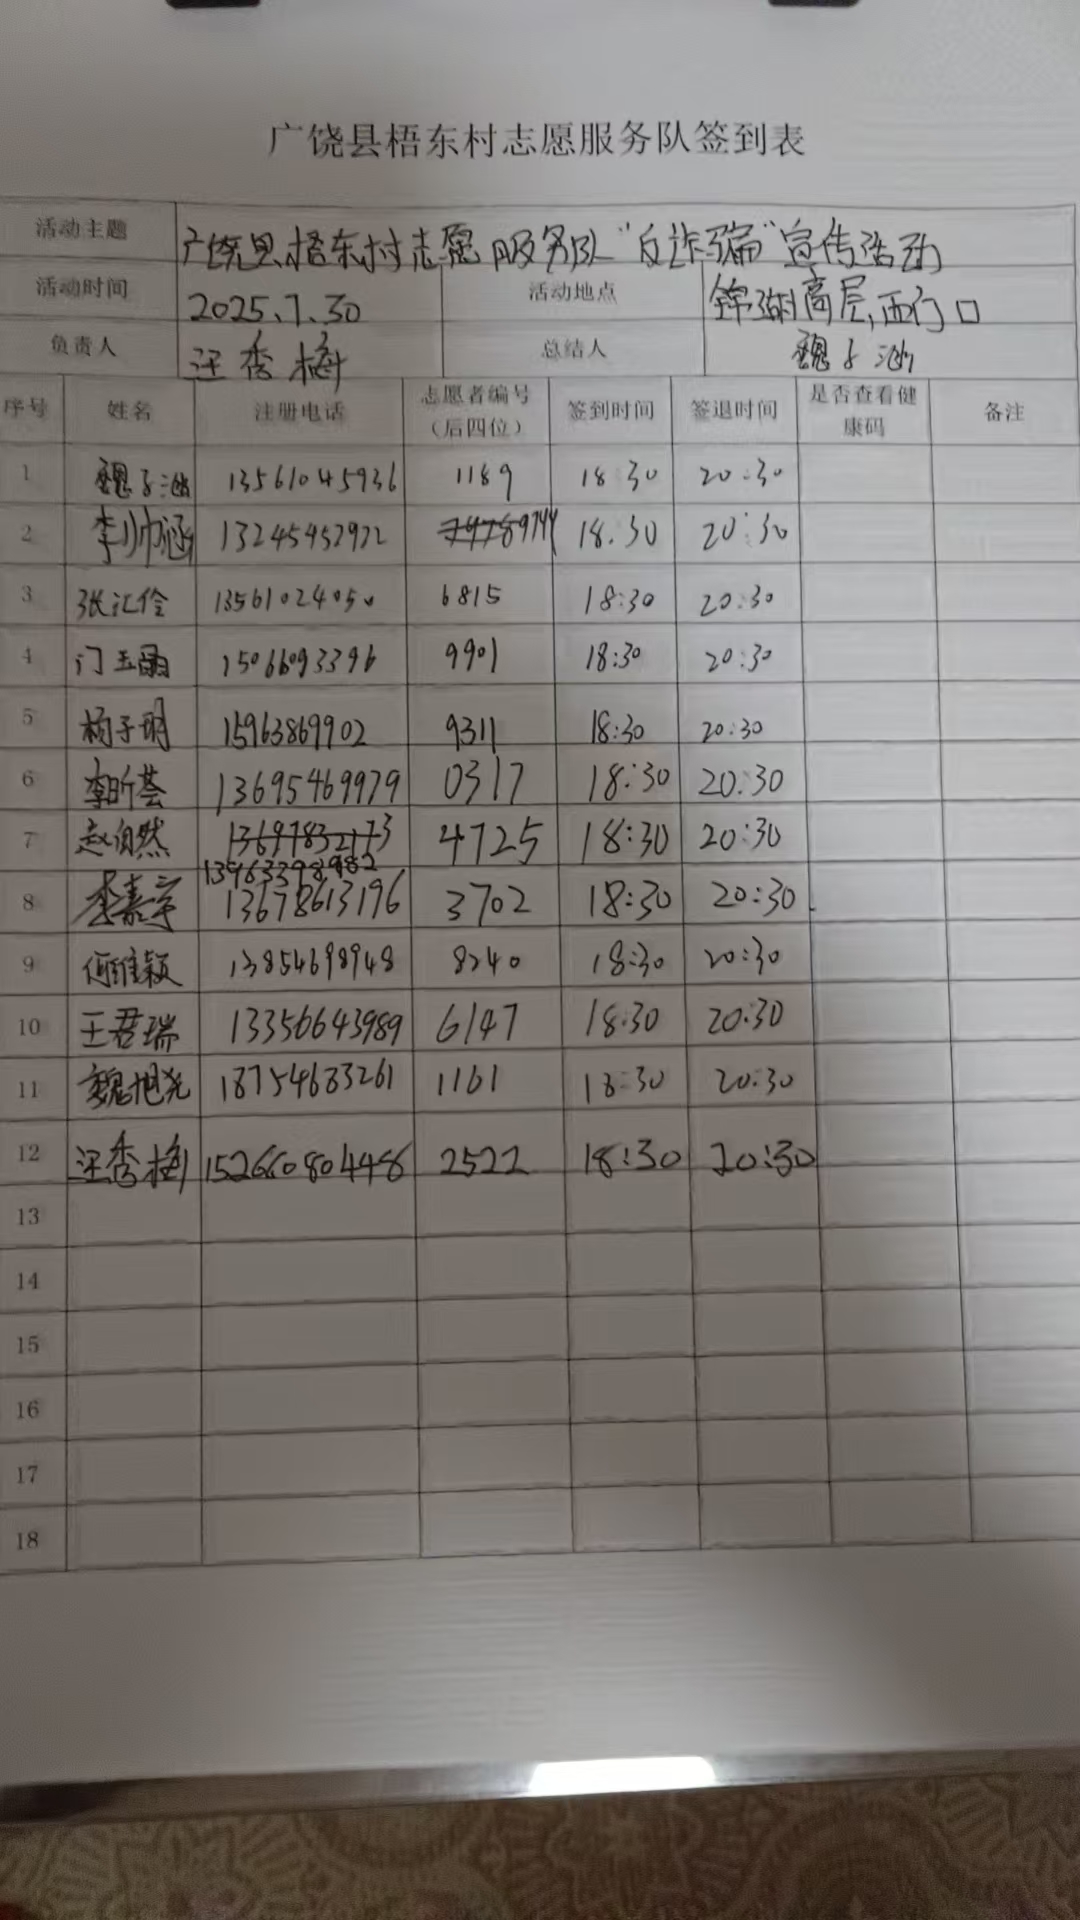 广饶县梧东村志愿服务队签到表
活动主题 广饶县梧东村志愿服务队“反诈骗”宣传活动
活动时间 2025.7.30 活动地点 锦湖高层,西门口
负责人 汪秀梅 总结人 魏子涵
序号 姓名 注册电话 志愿者编号（后四位） 签到时间 签退时间 是否查看健康码 备注
1 魏子涵 13561045936 1189 18:30 20:30
2 李帅涵 13245452922 9744 18:30 20:30
3 张汇伶 13561024050 6815 18:30 20:30
4 门玉 15066093396 9901 18:30 20:30
5 杨子明 15963869902 9311 18:30 20:30
6 李昕荟 13695469979 0317 18:30 20:30
7 赵自然 13697832173 4725 18:30 20:30
13963398982
8 李嘉宇 13678613196 3702 18:30 20:30
9 维颖 13854698948 8240 18:30 20:30
10 王君瑞 13356643989 6147 18:30 20:30
11 魏旭尧 18754683261 1161 18:30 20:30
12 汪秀梅 15266080448 2522 18:30 20:30
13
14
15
16
17
18